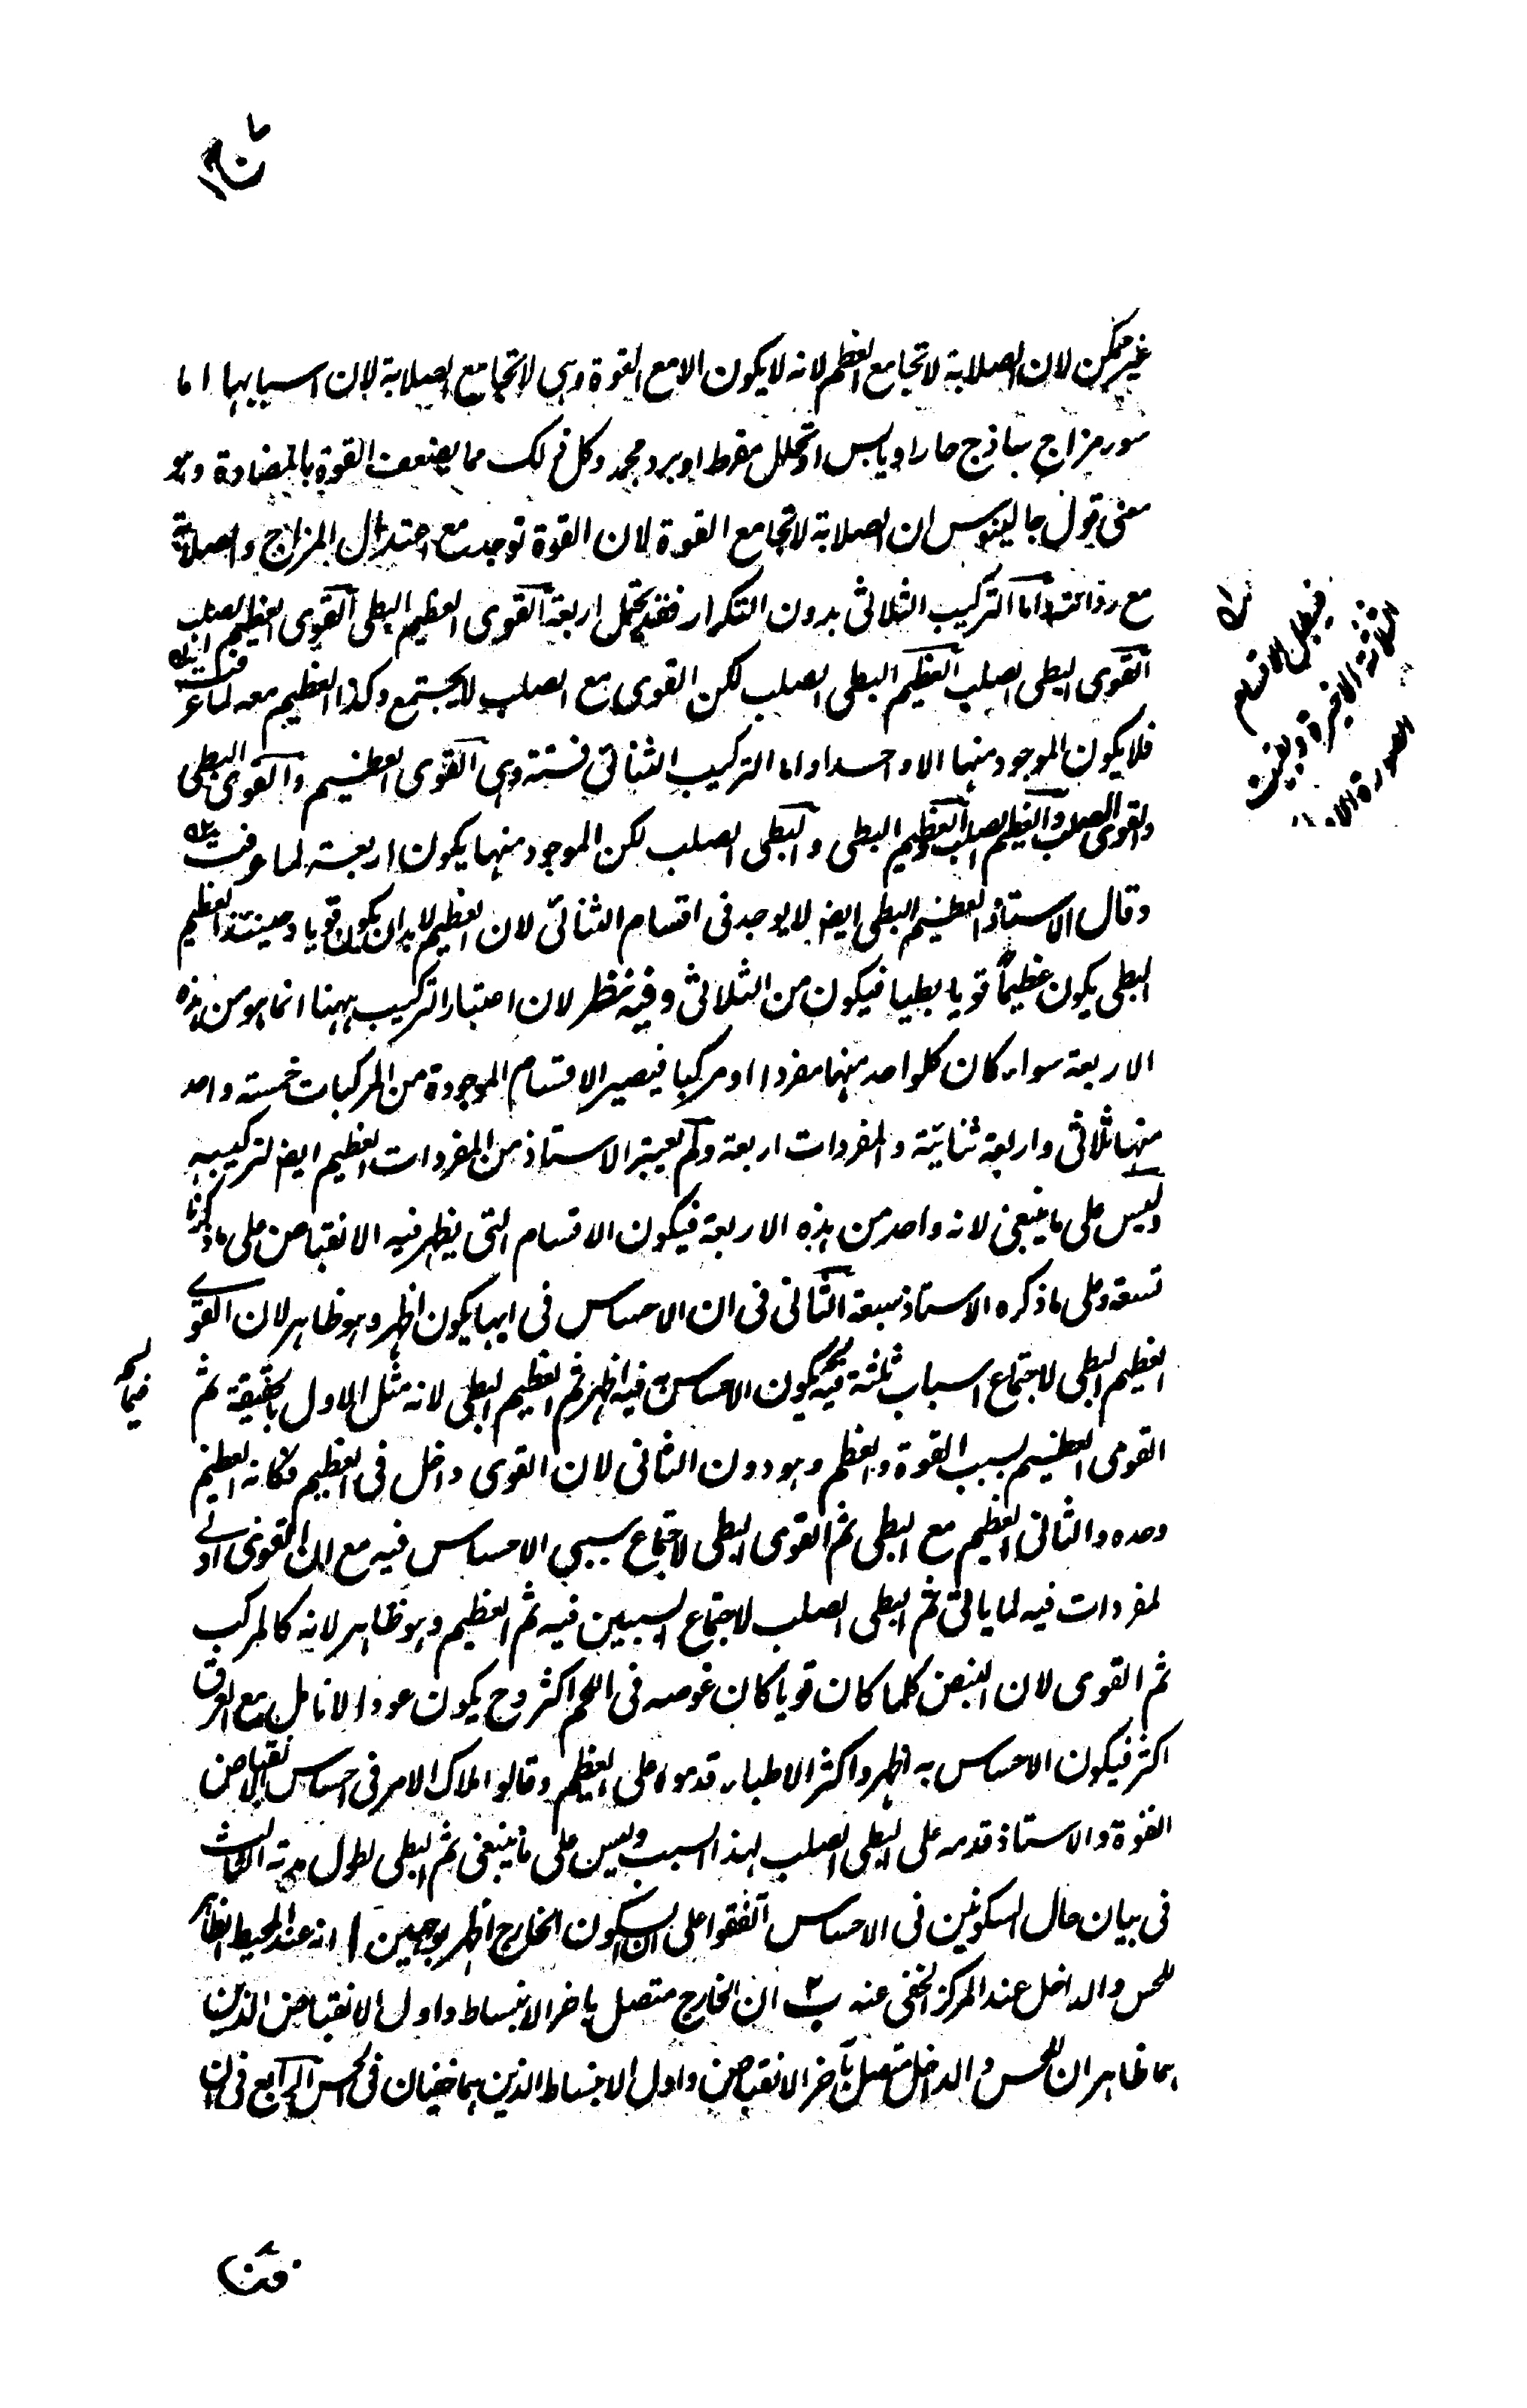 غير ممكن لان الصلابة لا تجامع العظم لانه لا يكون الا مع القوة وهى لا تجامع الصلابة لان اسبابها اما
سوء مزاج ساذج حار او يابس او تحلل مفرط او برد مجمد وكل ذلك مما يضعف القوة بالمضادة وهو
معنى قول جالينوس ان الصلابة لا تجامع القوة لان القوة توجد مع اعتدال المزاج والصلابة
مع رداءته واما التركيب الثلاثى بدون التكرار فقد يحتمل اربعة القوى العظيم البطى القوى العظيم الصلب
القوى البطى الصلب العظيم البطى الصلب لكن القوى مع الصلب لا يجتمع وكذا العظيم معه لما عرفت
فلا يكون الموجود منها الا واحدا واما التركيب الثنائى فستة وهى القوى العظيم والقوى البطى
والقوى الصلب والعظيم الصلب والعظيم البطى والبطى الصلب لكن الموجود منها يكون اربعة لما عرفت
وقال الاستاذ العظيم البطى ايضا لا يوجد فى اقسام الثنائى لان العظيم لا بد ان يكون قويا وحينئذ العظيم
البطى يكون عظيما قويا بطيا فيكون من الثلاثى وفيه نظر لان اعتبار التركيب ههنا انما هو من هذه
الاربعة سواء كان كلواحد منهما مفردا او مركبا فيصير الاقسام الموجودة من المركبات خمسة واحد
منها ثلاثى واربعة ثنائية والمفردات اربعة ولم يعتبر الاستاذ من المفردات العظيم ايضا لتركيبه
وليس على ما ينبغى لانه واحد من هذه الاربعة فيكون الاقسام التى يظهر فيه الانقباض على ما ذكرنا
تسعة وعلى ما ذكره الاستاذ سبعة الثانى فى ان الاحساس فى ايها يكون اظهر وهو ظاهر لان القوى
العظيم البطى لاجتماع اسباب ثلثة فيه يكون الاحساس فيه اظهر ثم العظيم البطى لانه مثل الاول بالحقيقة ثم
القوى العظيم بسبب القوة والعظم وهو دون الثانى لان القوى داخل فى العظيم فكانه العظيم
وحده والثانى العظيم مع البطى ثم القوى البطى لاجتماع سببى الاحساس فيه مع ان القوى اولى
لمفردات فيه لما ياتى ثم البطى الصلب لاجتماع السببين فيه ثم العظيم وهو ظاهر لانه كالمركب
ثم القوى لان النبض كلما كان قويا كان غوصه فى اللحم اكثر وح يكون عود الانامل مع العرق
اكثر فيكون الاحساس به اظهر واكثر الاطباء قدموه على العظيم وقالوا ملاك الامر فى احساس الانقباض
القوة والاستاذ قدمه على البطى الصلب لهذا السبب وليس على ما ينبغى ثم البطى لطول مدته الثالث
فى بيان حال السكونين فى الاحساس اتفقوا على ان السكون الخارج اظهر بوجهين ا انه عند المحيط الظاهر
للحس والداخل عند المركز الخفى عنه ب ان الخارج متصل باخر الانبساط واول الانقباض الذين
هما ظاهران للحس والداخل متصل بآخر الانقباض واول الانبساط الذين هما خفيان فى الحس الرابع فى ان
فيبطل الاقسام
الثلاثة الاخيرة وبقيت